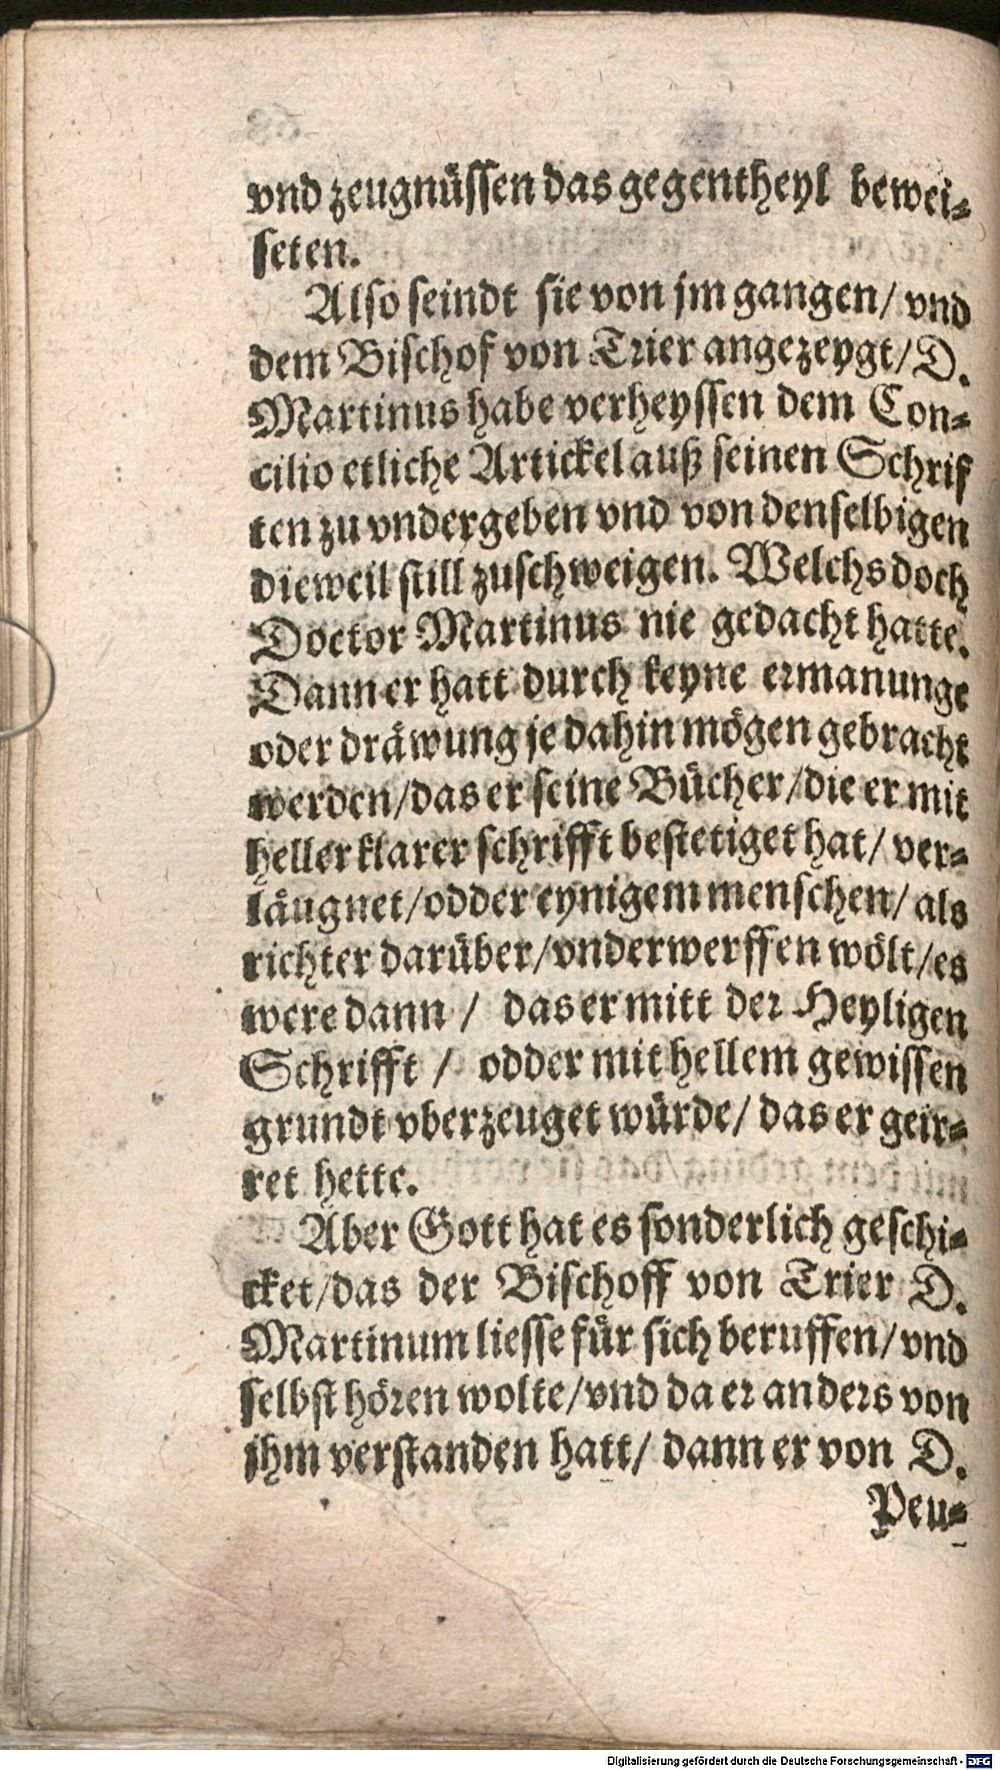 vnd zeugnüſſen das gegentheyl bewei⸗
ſeten.
Alſo ſeindt ſie von jm gangen/ vnd
dem Biſchof von Trier angezeygt/ D.
Martinus habe verheyſſen dem Con⸗
cilio etliche Artickel auß ſeinen Schrif
ten zu vndergeben vnd von denſelbigen
dieweil ſtill zuſchweigen. Welchs doch
Doctor Martinus nie gedacht hatte.
Dann er hatt durch keyne ermanunge
oder dräwung je dahin mögen gebracht
werden/das er ſeine Bücher/die er mit
heller klarer ſchrifft beſtetiget hat/ ver⸗
läugnet/odder eynigem menſchen/ als
richter darüber/vnderwerffen wölt/es
were dann / das er mitt der Heyligen
Schrifft / odder mit hellem gewiſſen
grundt vberzeuget würde/ das er geir⸗
ret hette.
Aber Gott hat es ſonderlich geſchi⸗
cket/das der Biſchoff von Trier D.
Martinum lieſſe für ſich beruffen/ vnd
ſelbſt hören wolte/vnd da er anders von
jhm verſtanden hatt/ dann er von D.
Peu⸗
Digitalisierung gefördert durch die Deutsche Forschungsgemeinschaft - DFG